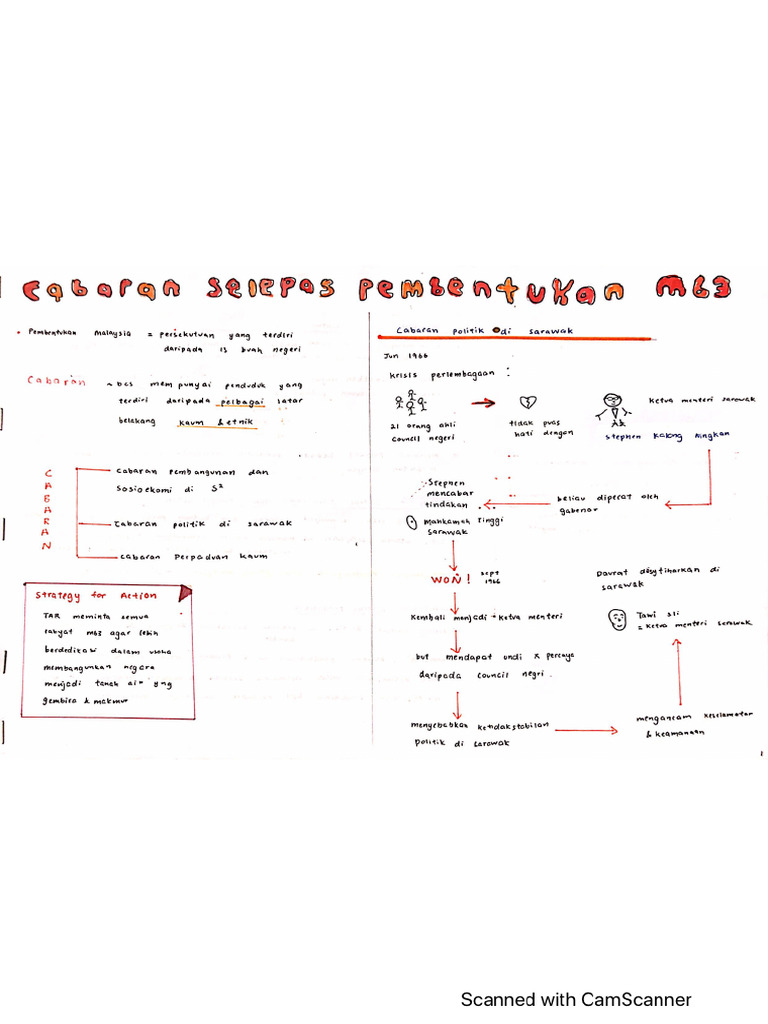 Cabaran selepas pembentukan M63
• Pembentukan Malaysia = persekutuan yang terdiri
daripada 13 buah negeri
Cabaran ~ bcs mempunyai penduduk yang
terdiri daripada pelbagai latar
belakang kaum & etnik
CABARAN
Cabaran pembangunan dan
Sosioekomi di S²
Cabaran politik di sarawak
Cabaran Perpaduan kaum
Strategy for Action
TAR meminta semua
rakyat M63 agar lebih
berdedikasi dalam usaha
membangunkan negara
menjadi tanah air yng
gembira & makmur
Cabaran politik di sarawak
Jun 1966
Krisis perlembagaan :
21 orang ahli
council negeri
tidak puas
hati dengan
Ketua menteri sarawak
Stephen Kalong Ningkan
beliau dipecat oleh
gabenor
Stephen
mencabar
tindakan
@ Mahkamah Tinggi
Sarawak
WON! sept
1966
Kembali menjadi ketua menteri
but mendapat undi x percaya
daripada council negri.
menyebabkan ketidakstabilan
politik di sarawak
mengancam keselamatan
& keamanan
Tawi sli
= ketua menteri sarawak
Daurat disytiharkan di
sarawak
1
Scanned with CamScanner